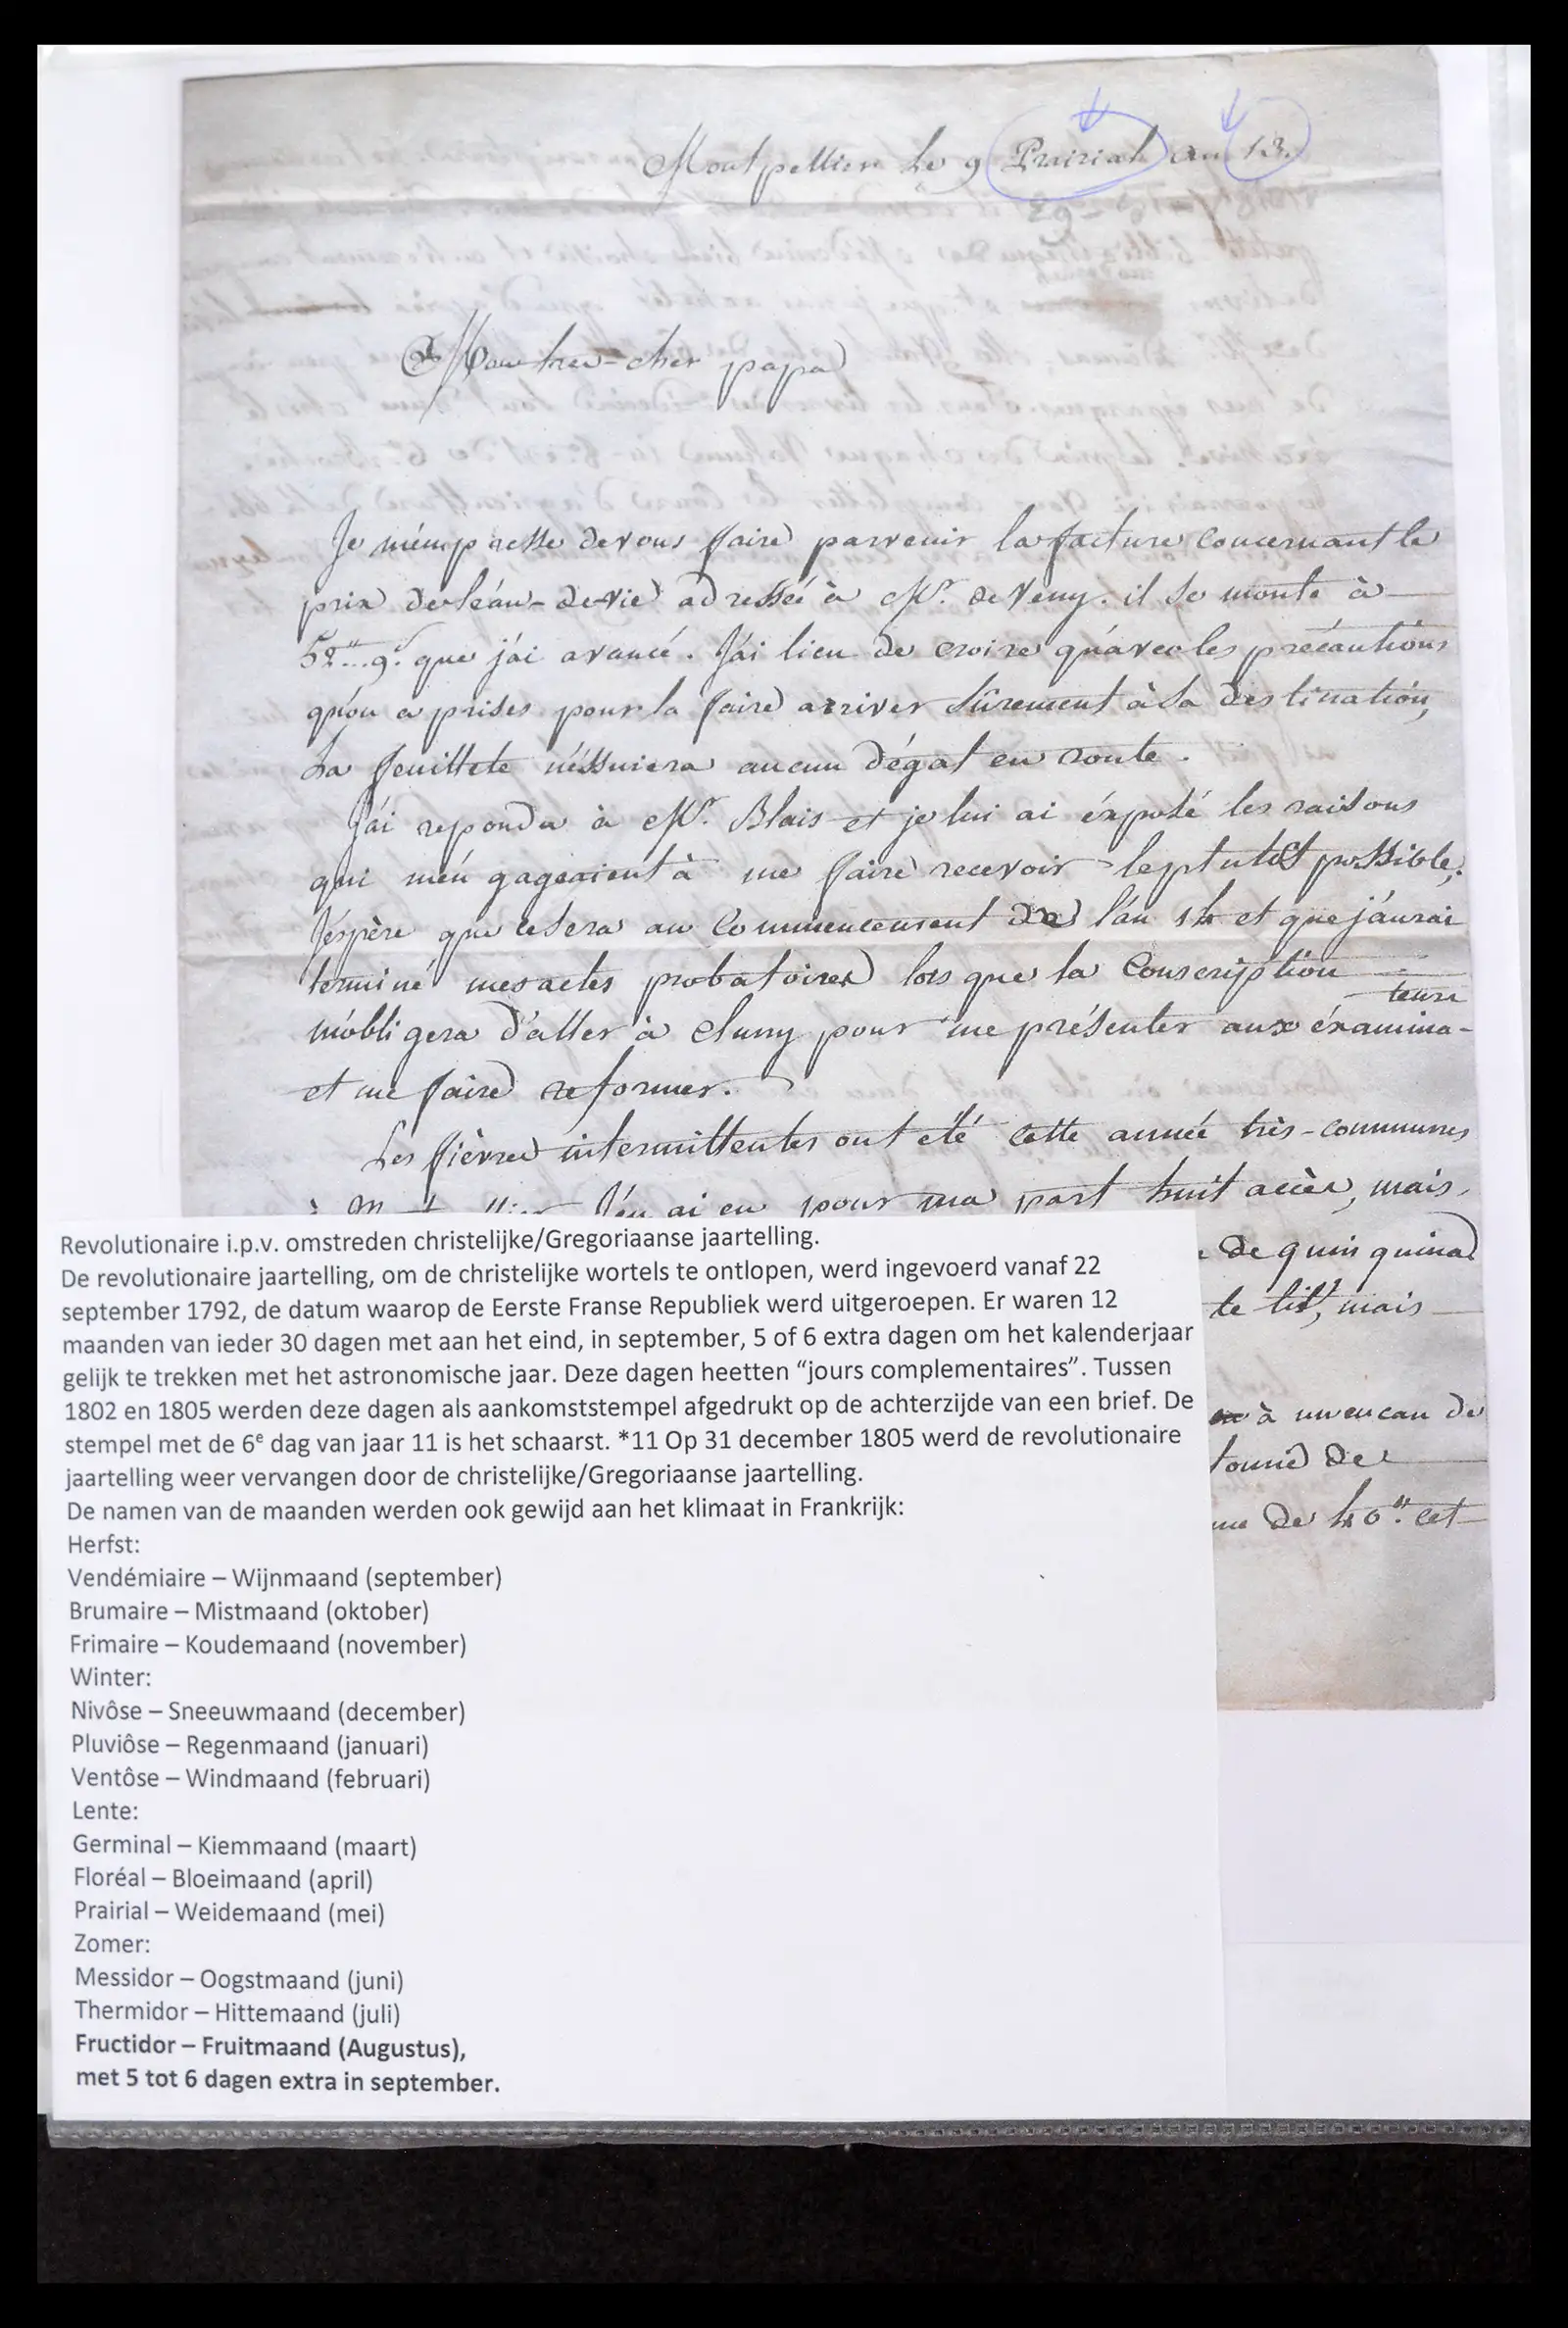 Montpellier le 9 Prairial an 13.
Mon tres-cher papa
Je m'empresse de vous faire parvenir la facture concernant le
prix de l'éau-de-vie adressée à Mr. de Veny. il se monte à
52"..9s. que j'ai avancé. J'ai lieu de croire qu'avec les précautions
qu'on a prises pour la faire arriver sûrement à sa destination,
La feuillete n'éssuiera aucun dégat en route.
J'ai repondu à Mr. Blais et je lui ai éxposé les raisons
qui m'en gageaient à me faire recevoir le plutôt possible.
J'éspère que ce sera au commencement de l'an 14 et que j'aurai
terminé mes actes probatoires lors que la Conscription
m'obligera d'aller à Cluny pour me présenter aux éxamina-
teurs
et me faire reformer.
Les fièvres intermittentes ont eté cette année très-communes
à J'en ai eu pour ma part huit accès, mais
de quin quina
le lit, mais
à un encan de
tonne de
de 40". cet
Revolutionaire i.p.v. omstreden christelijke/Gregoriaanse jaartelling.
De revolutionaire jaartelling, om de christelijke wortels te ontlopen, werd ingevoerd vanaf 22
september 1792, de datum waarop de Eerste Franse Republiek werd uitgeroepen. Er waren 12
maanden van ieder 30 dagen met aan het eind, in september, 5 of 6 extra dagen om het kalenderjaar
gelijk te trekken met het astronomische jaar. Deze dagen heetten “jours complementaires”. Tussen
1802 en 1805 werden deze dagen als aankomststempel afgedrukt op de achterzijde van een brief. De
stempel met de 6e dag van jaar 11 is het schaarst. *11 Op 31 december 1805 werd de revolutionaire
jaartelling weer vervangen door de christelijke/Gregoriaanse jaartelling.
De namen van de maanden werden ook gewijd aan het klimaat in Frankrijk:
Herfst:
Vendémiaire – Wijnmaand (september)
Brumaire – Mistmaand (oktober)
Frimaire – Koudemaand (november)
Winter:
Nivôse – Sneeuwmaand (december)
Pluviôse – Regenmaand (januari)
Ventôse – Windmaand (februari)
Lente:
Germinal – Kiemmaand (maart)
Floréal – Bloeimaand (april)
Prairial – Weidemaand (mei)
Zomer:
Messidor – Oogstmaand (juni)
Thermidor – Hittemaand (juli)
Fructidor – Fruitmaand (Augustus),
met 5 tot 6 dagen extra in september.